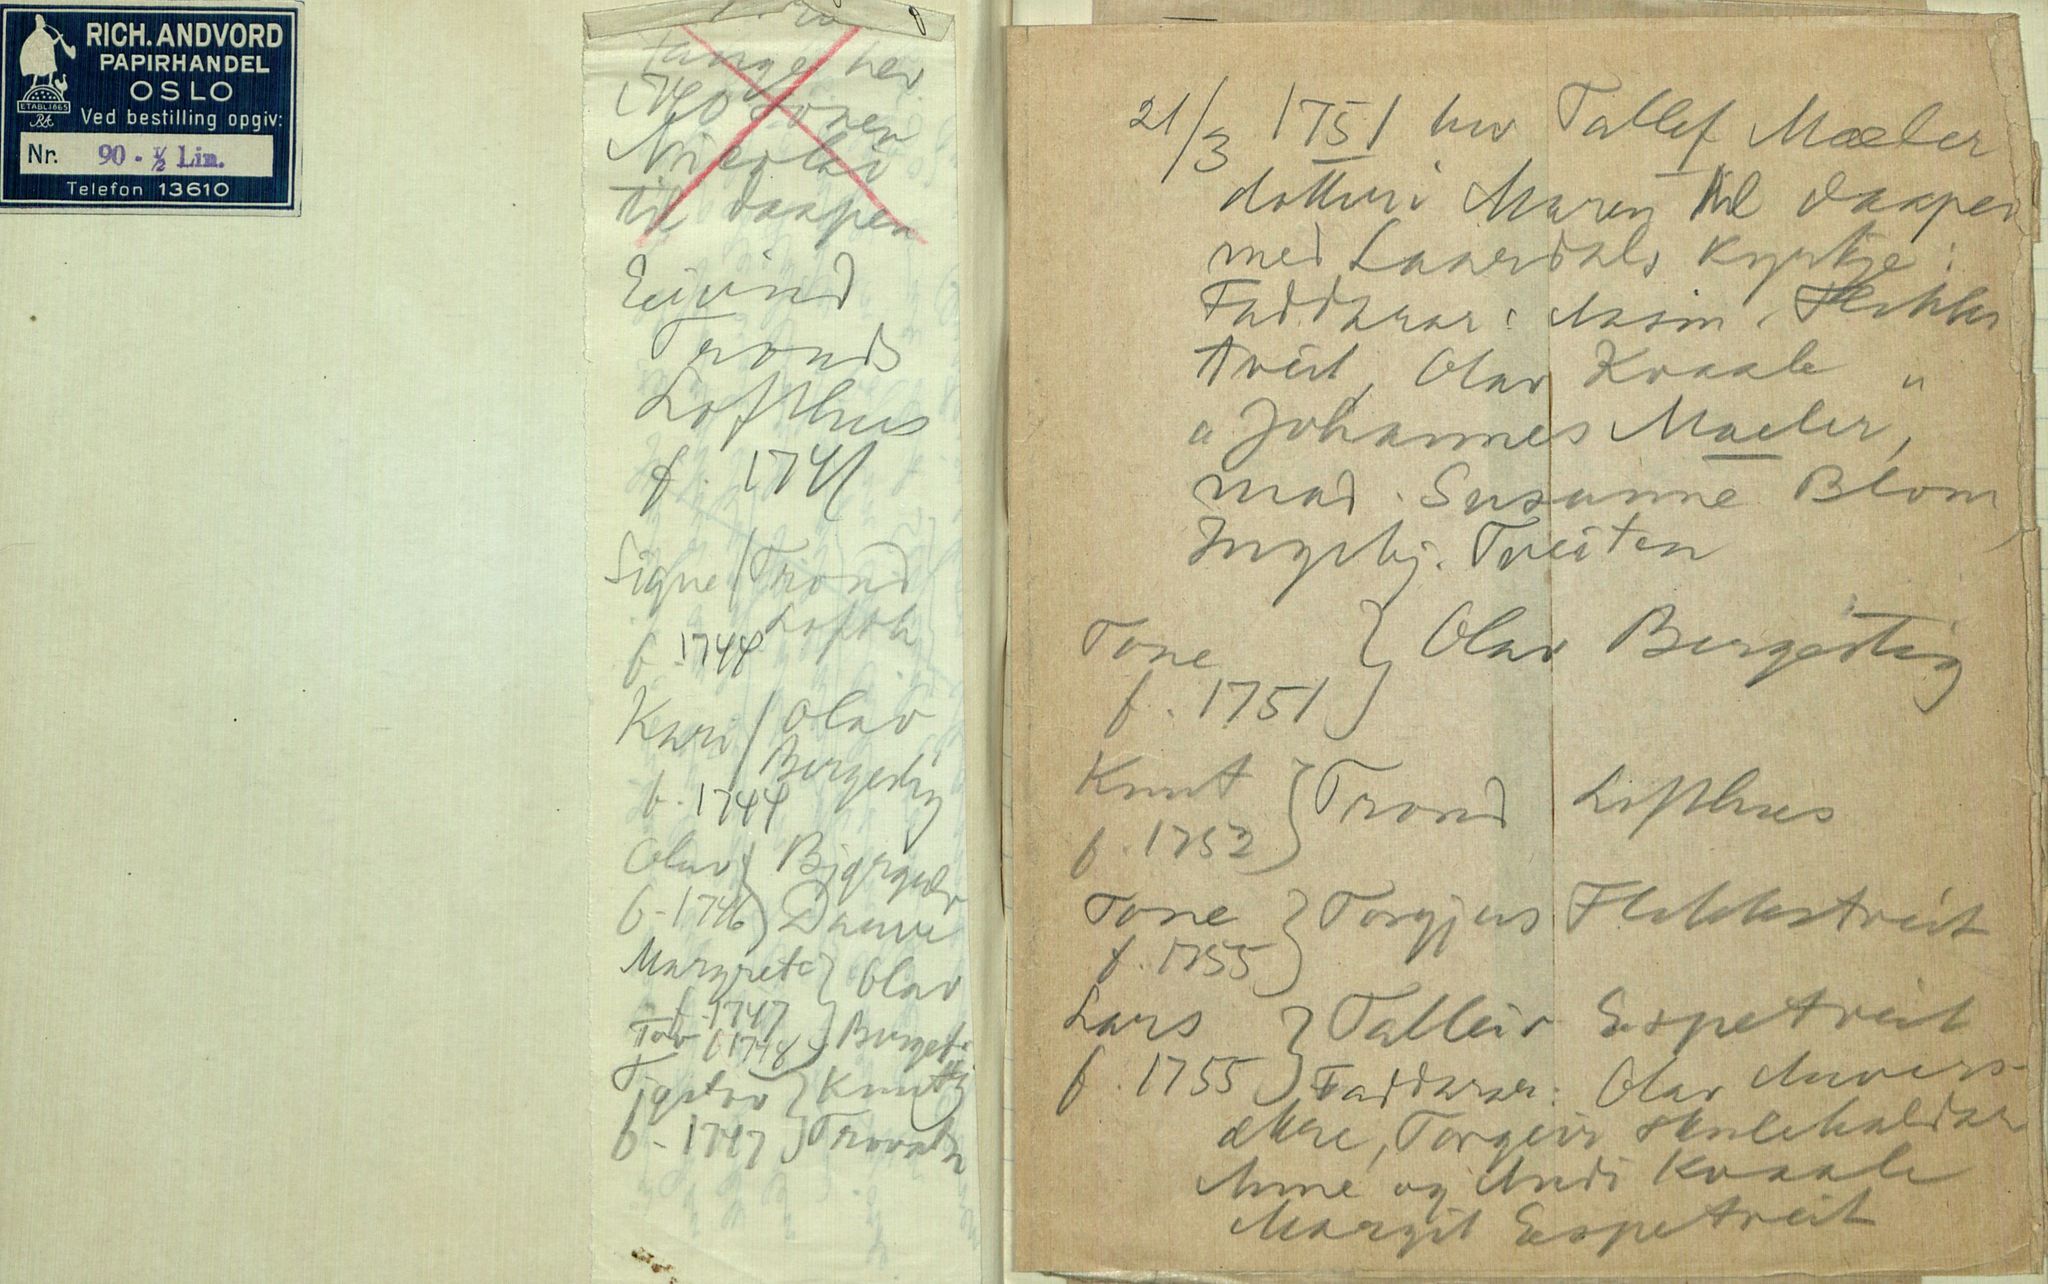 RICH. ANDVORD
PAPIRHANDEL
OSLO
ETABL. 1865
RA
Ved bestilling opgiv:
Nr. 90 - ½ Lin.
Telefon 13610
Tange her
1740 sonen
Nicolai
til daapen
Eivind
Tronds
Lofthus
f. 1741
Signe / Trond
Lofth
f. 1744
Kari / Olav
Bergestig
f. 1744
Olav } Bjørgulv
f. 1746 } Daure
Margrete } Olav
f. 1747
Tov f. 1748 } Bergesti
} Knut
f. 1747 } Trovatn
21/3 1751 her Tallef Mæler
dotteri Maren til daapen
med Laardals kyrkje:
Faddarar: Flekke
tveit, Olav Kvaale "
" Johannes Mæler,
mad. Susanne Blom
Ingebj. Tveiten
Tone } Olav Bergestig
f. 1751
Knut } Trond Lofthus
f. 1752
Tone } Torgjus Flekkstveit
f. 1755
Lars } Talleiv Espetveit
f. 1755 } Faddarar: Olav
Torgeir Skulehaldar
Anne og Kvaale
Margit Espetveit